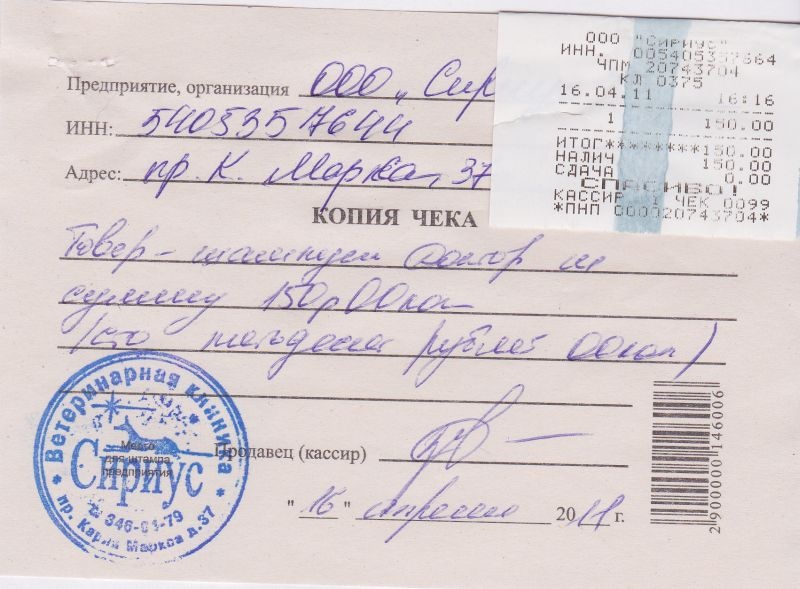 ООО "СИРИУС"
ИНН. 005405357664
ЧПМ 20743704
КЛ 0375
16.04.11 16:16
1 150.00
ИТОГ*********150.00
НАЛИЧ 150.00
СДАЧА 0.00
СПАСИБО!
КАССИР 1 ЧЕК 0099
*ПНП 000020743704*
Предприятие, организация ООО "Сир
ИНН: 5405357644
Адрес: пр. К. Маркса, 37
КОПИЯ ЧЕКА
Товар - шампунь на
сумму 150р00коп
(сто пятьдесят рублей 00коп)
Ветеринарная клиника
Сириус
Место
для штампа
предприятия
346-01-79
пр. Карла Маркса д.37
Продавец (кассир)
"16" апреля 2011 г.
2 900000 146006